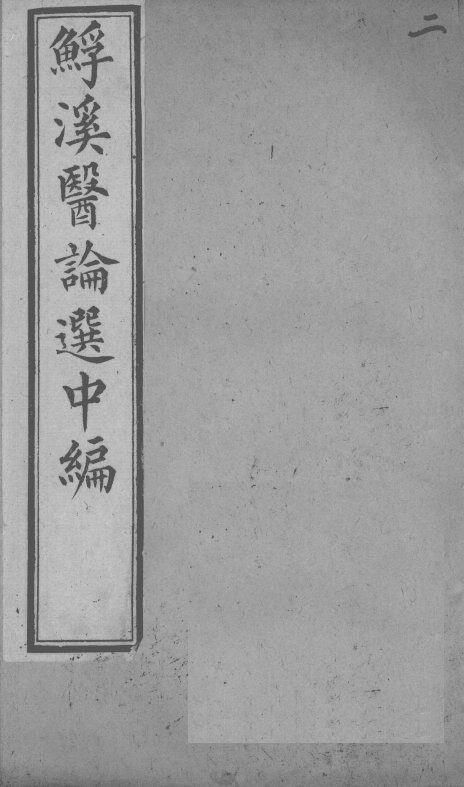 二
鯚溪醫論選中編